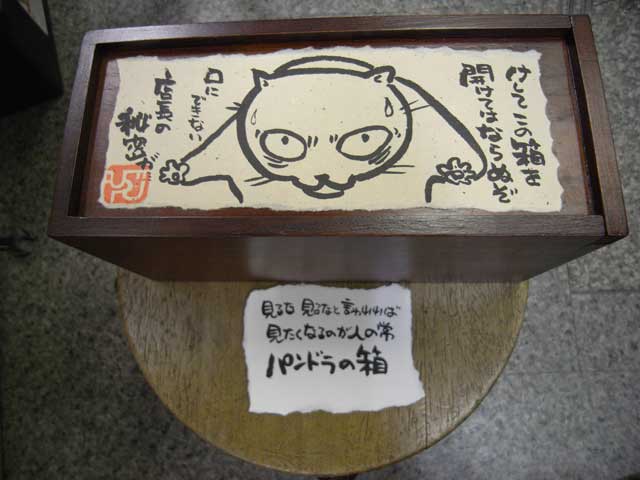 けしてこの箱を
開けてはならぬぞ
口に
できない
店長の
秘密が…
見るな 見るなと言われれば
見たくなるのが人の常
パンドラの箱